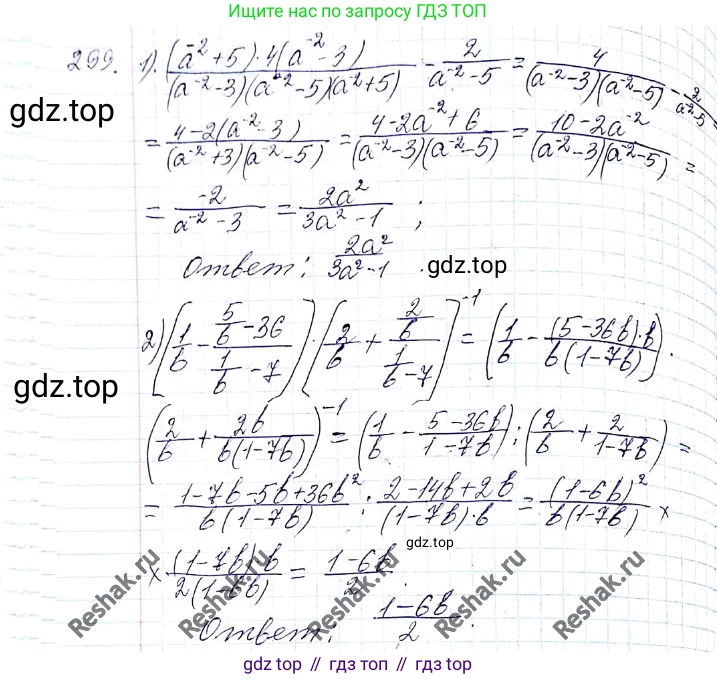 Ищите нас по запросу ГДЗ ТОП
299. 1). (a⁻²+5)·4(a⁻²-3)/(a⁻²-3)(a⁻²-5)(a⁻²+5) - 2/(a⁻²-5) = 4/(a⁻²-3)(a⁻²-5) - 2/(a⁻²-5) =
gdz.top
= (4-2(a⁻²-3))/(a⁻²+3)(a⁻²-5) = (4-2a⁻²+6)/(a⁻²-3)(a⁻²-5) = (10-2a⁻²)/(a⁻²-3)(a⁻²-5) =
= -2/(a⁻²-3) = 2a²/(3a²-1) ;
Ответ: 2a²/(3a²-1) .
gdz.top
2) [1/b - (5/b-36)/(1/b-7)]·[2/b + (2/b)/(1/b-7)]⁻¹ = (1/b - (5-36b)·b/b(1-7b)).
gdz.top
(2/b + 2b/b(1-7b))⁻¹ = (1/b - (5-36b)/(1-7b)) : (2/b + 2/(1-7b)) =
= (1-7b-5b+36b²)/b(1-7b) : (2-14b+2b)/(1-7b)·b = (1-6b)²/b(1-7b) ×
gdz.top
× (1-7b)·b/2(1-6b) = (1-6b)/2 .
Ответ: (1-6b)/2 .
Reshak.ru
Reshak.ru
Reshak.ru
Reshak.ru
gdz.top // гдз топ // гдз.top